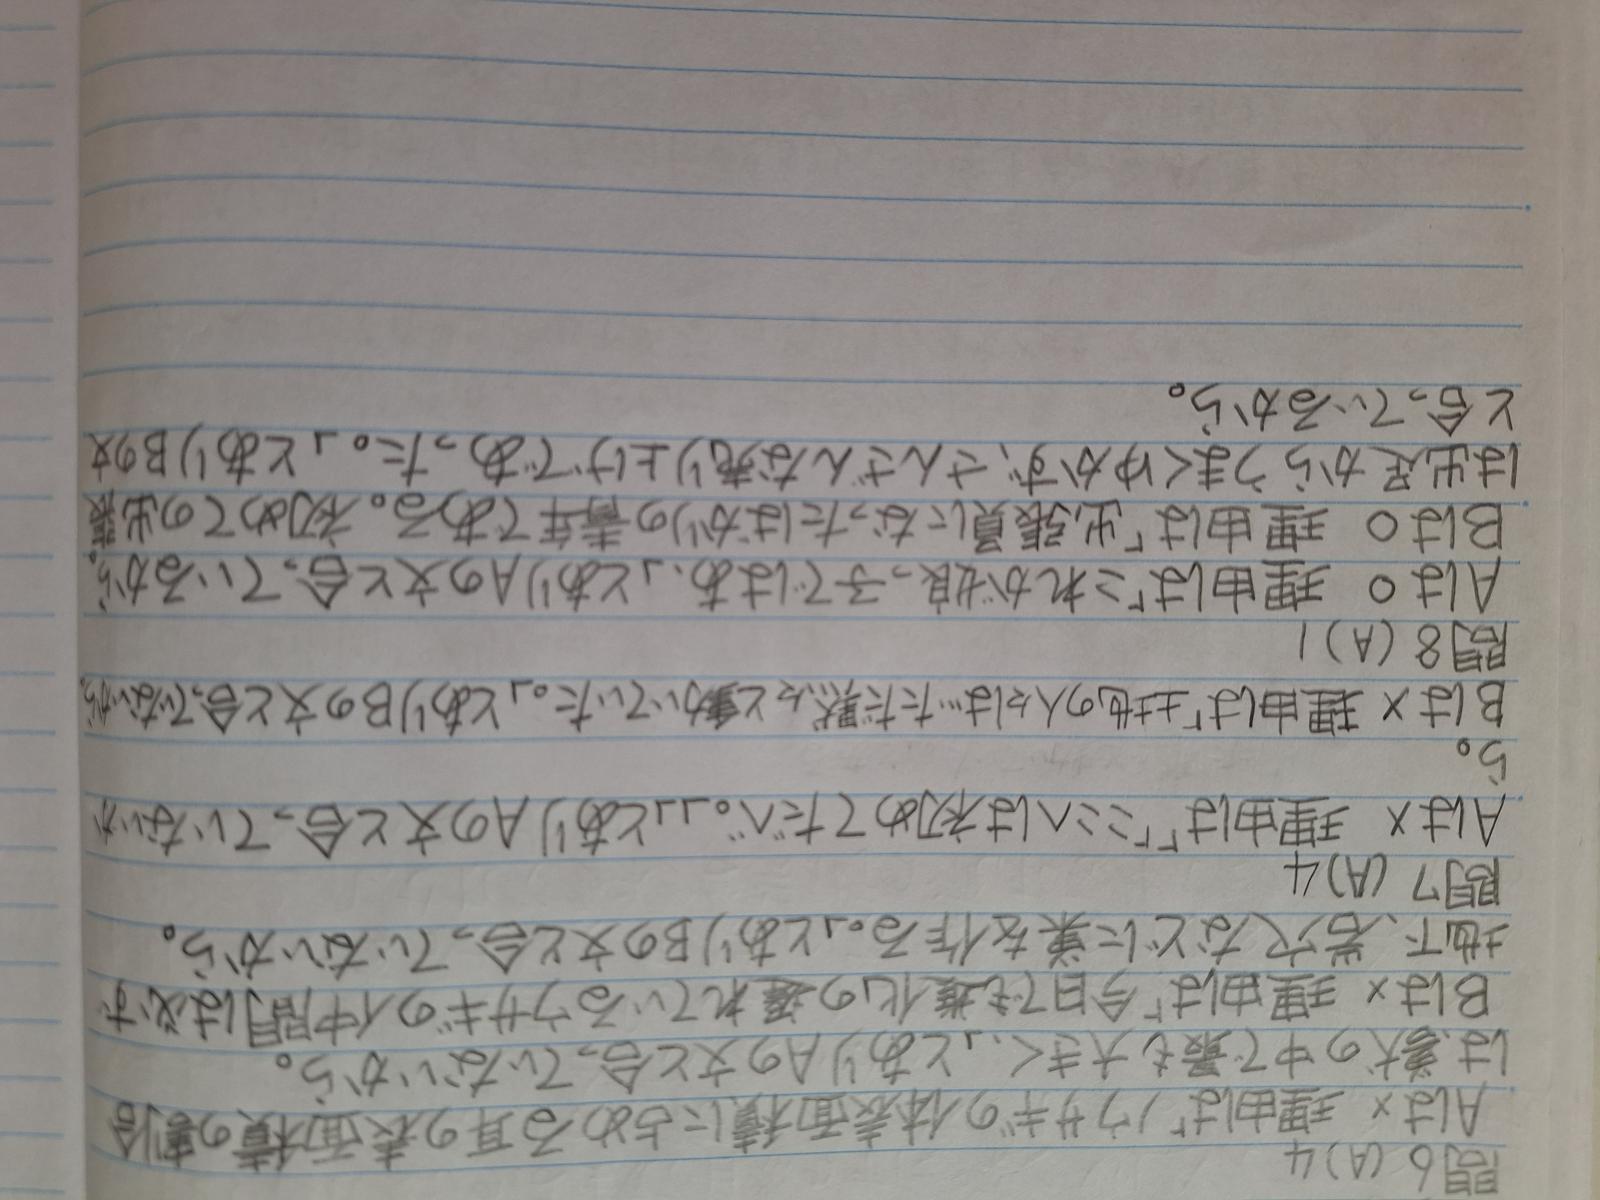 問6 (A) 4
Aは× 理由は「ノウサギの体表面積に占める耳の表面積の割合
は、獣の中で最も大きく、」とありAの文と合っていないから。
Bは× 理由は「今日でも進化の遅れているウサギの仲間は必ず
地下、岩穴などに巣を作る。」とありBの文と合っていないから。
問7 (A) 4
Aは× 理由は「「ここへは初めてだべ。」」とありAの文と合っていないか
ら。
Bは× 理由は「土地の人々はただ黙々と動いていた。」とありBの文と合っていないから。
問8 (A) 1
Aは○ 理由は「これが娘っ子ではあ、」とありAの文と合っているから。
Bは○ 理由は「出張員になったばかりの青年である。初めての出張
は出足からうまくゆかず、さんざんな売り上げであった。」とありBの文
と合っているから。